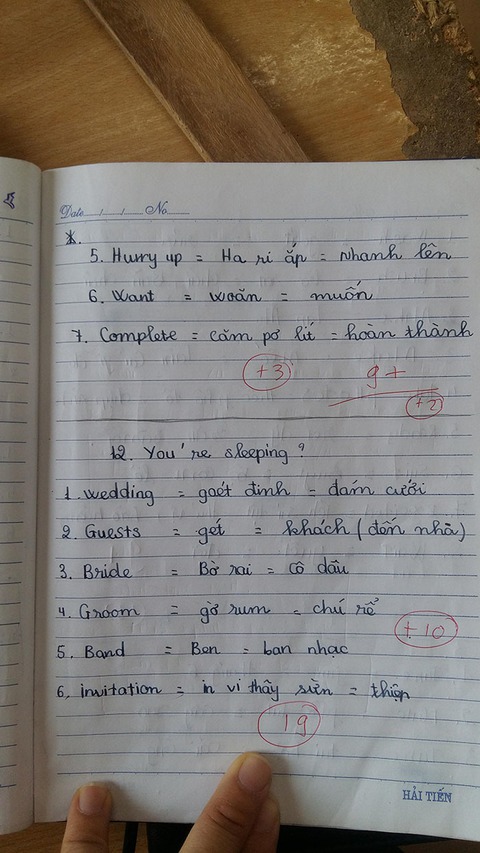 Date / / No
*.
5. Hurry up = Ha ri ắp = nhanh lên
6. Want = woăn = muốn
7. Complete = căm pơ lít = hoàn thành
+3
9+
+2
12. You're sleeping?
1. Wedding = goét đinh = đám cưới
2. Guests = gét = khách (đến nhà)
3. Bride = Bờ rai = cô dâu
4. Groom = gờ rum = chú rể
+10
5. Band = Ben = ban nhạc
6, invitation = in vi thây siền = thiệp
19
HẢI TIẾN